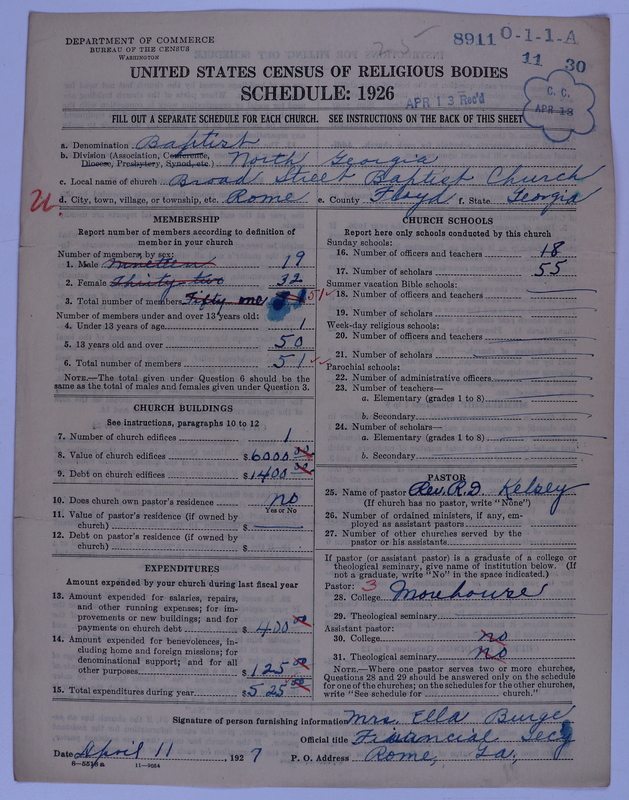 DEPARTMENT OF COMMERCE
BUREAU OF THE CENSUS
WASHINGTON
8911 0-1-1-A
11 30
UNITED STATES CENSUS OF RELIGIOUS BODIES
SCHEDULE: 1926
APR 13 Rec'd
C. C.
APR 13
FILL OUT A SEPARATE SCHEDULE FOR EACH CHURCH. SEE INSTRUCTIONS ON THE BACK OF THIS SHEET
a. Denomination Baptist
b. Division (Association, Conference, Diocese, Presbytery, Synod, etc.) North Georgia
c. Local name of church Broad Street Baptist Church
d. City, town, village, or township, etc. Rome e. County Floyd f. State Georgia
MEMBERSHIP
Report number of members according to definition of
member in your church
Number of members by sex:
1. Male Nineteen 19
2. Female Thirty two 32
3. Total number of members Fifty one 51
Number of members under and over 13 years old:
4. Under 13 years of age 1
5. 13 years old and over 50
6. Total number of members 51
NOTE.—The total given under Question 6 should be
same as the total of males and females given under Question 3.
CHURCH BUILDINGS
See instructions, paragraphs 10 to 12
7. Number of church edifices 1
8. Value of church edifices $6000.00
9. Debt on church edifices $1400.00
10. Does church own pastor's residence no
Yes or No
11. Value of pastor's residence (if owned by
church) $
12. Debt on pastor's residence (if owned by
church) $
EXPENDITURES
Amount expended by your church during last fiscal year
13. Amount expended for salaries, repairs,
and other running expenses; for im-
provements or new buildings; and for
payments on church debt $400.00
14. Amount expended for benevolences, in-
cluding home and foreign missions; for
denominational support; and for all
other purposes $125.00
15. Total expenditures during year $525.00
CHURCH SCHOOLS
Report here only schools conducted by this church
Sunday schools:
16. Number of officers and teachers 18
17. Number of scholars 55
Summer vacation Bible schools:
18. Number of officers and teachers
19. Number of scholars
Week-day religious schools:
20. Number of officers and teachers
21. Number of scholars
Parochial schools:
22. Number of administrative officers
23. Number of teachers—
a. Elementary (grades 1 to 8)
b. Secondary
24. Number of scholars—
a. Elementary (grades 1 to 8)
b. Secondary
PASTOR
25. Name of pastor Rev. R. D. Kelsey
(If church has no pastor, write "None")
26. Number of ordained ministers, if any, em-
ployed as assistant pastors
27. Number of other churches served by the
pastor or his assistants
If pastor (or assistant pastor) is a graduate of a college or
theological seminary, give name of institution below. (If
not a graduate, write "No" in the space indicated.)
Pastor: 3
28. College Morehouse
29. Theological seminary
Assistant pastor:
30. College no
31. Theological seminary no
NOTE.—Where one pastor serves two or more churches,
Questions 28 and 29 should be answered only on the schedule
for one of the churches; on the schedules for the other churches,
write "See schedule for church."
Signature of person furnishing information Mrs. Ella Burge
Official title Financial Secy
Date April 11 1927 P. O. Address Rome, Ga.
8-5518a 11-9054